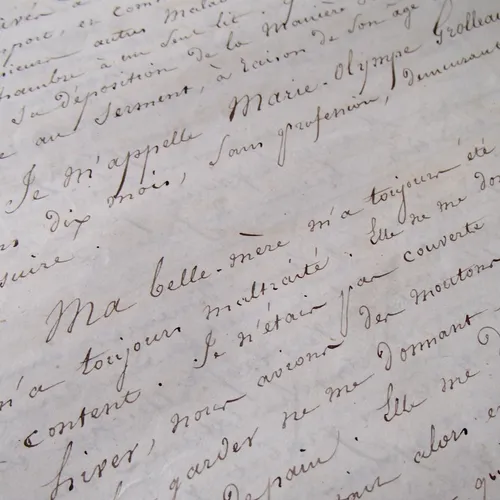 sieurs autres malad
chambre à un seul lit.
sa déposition de la manière
au serment, à raison de son âge
Je m'appelle Marie-Olympe Grolleau
dix mois, sans profession, demeurant
Ma belle-mère m'a toujours été
m'a toujours maltraité. Elle ne me don
content. Je n'étais pas couverte
hiver, nous avions des moutons
garder ne me donnant
De pain. Elle me
alors